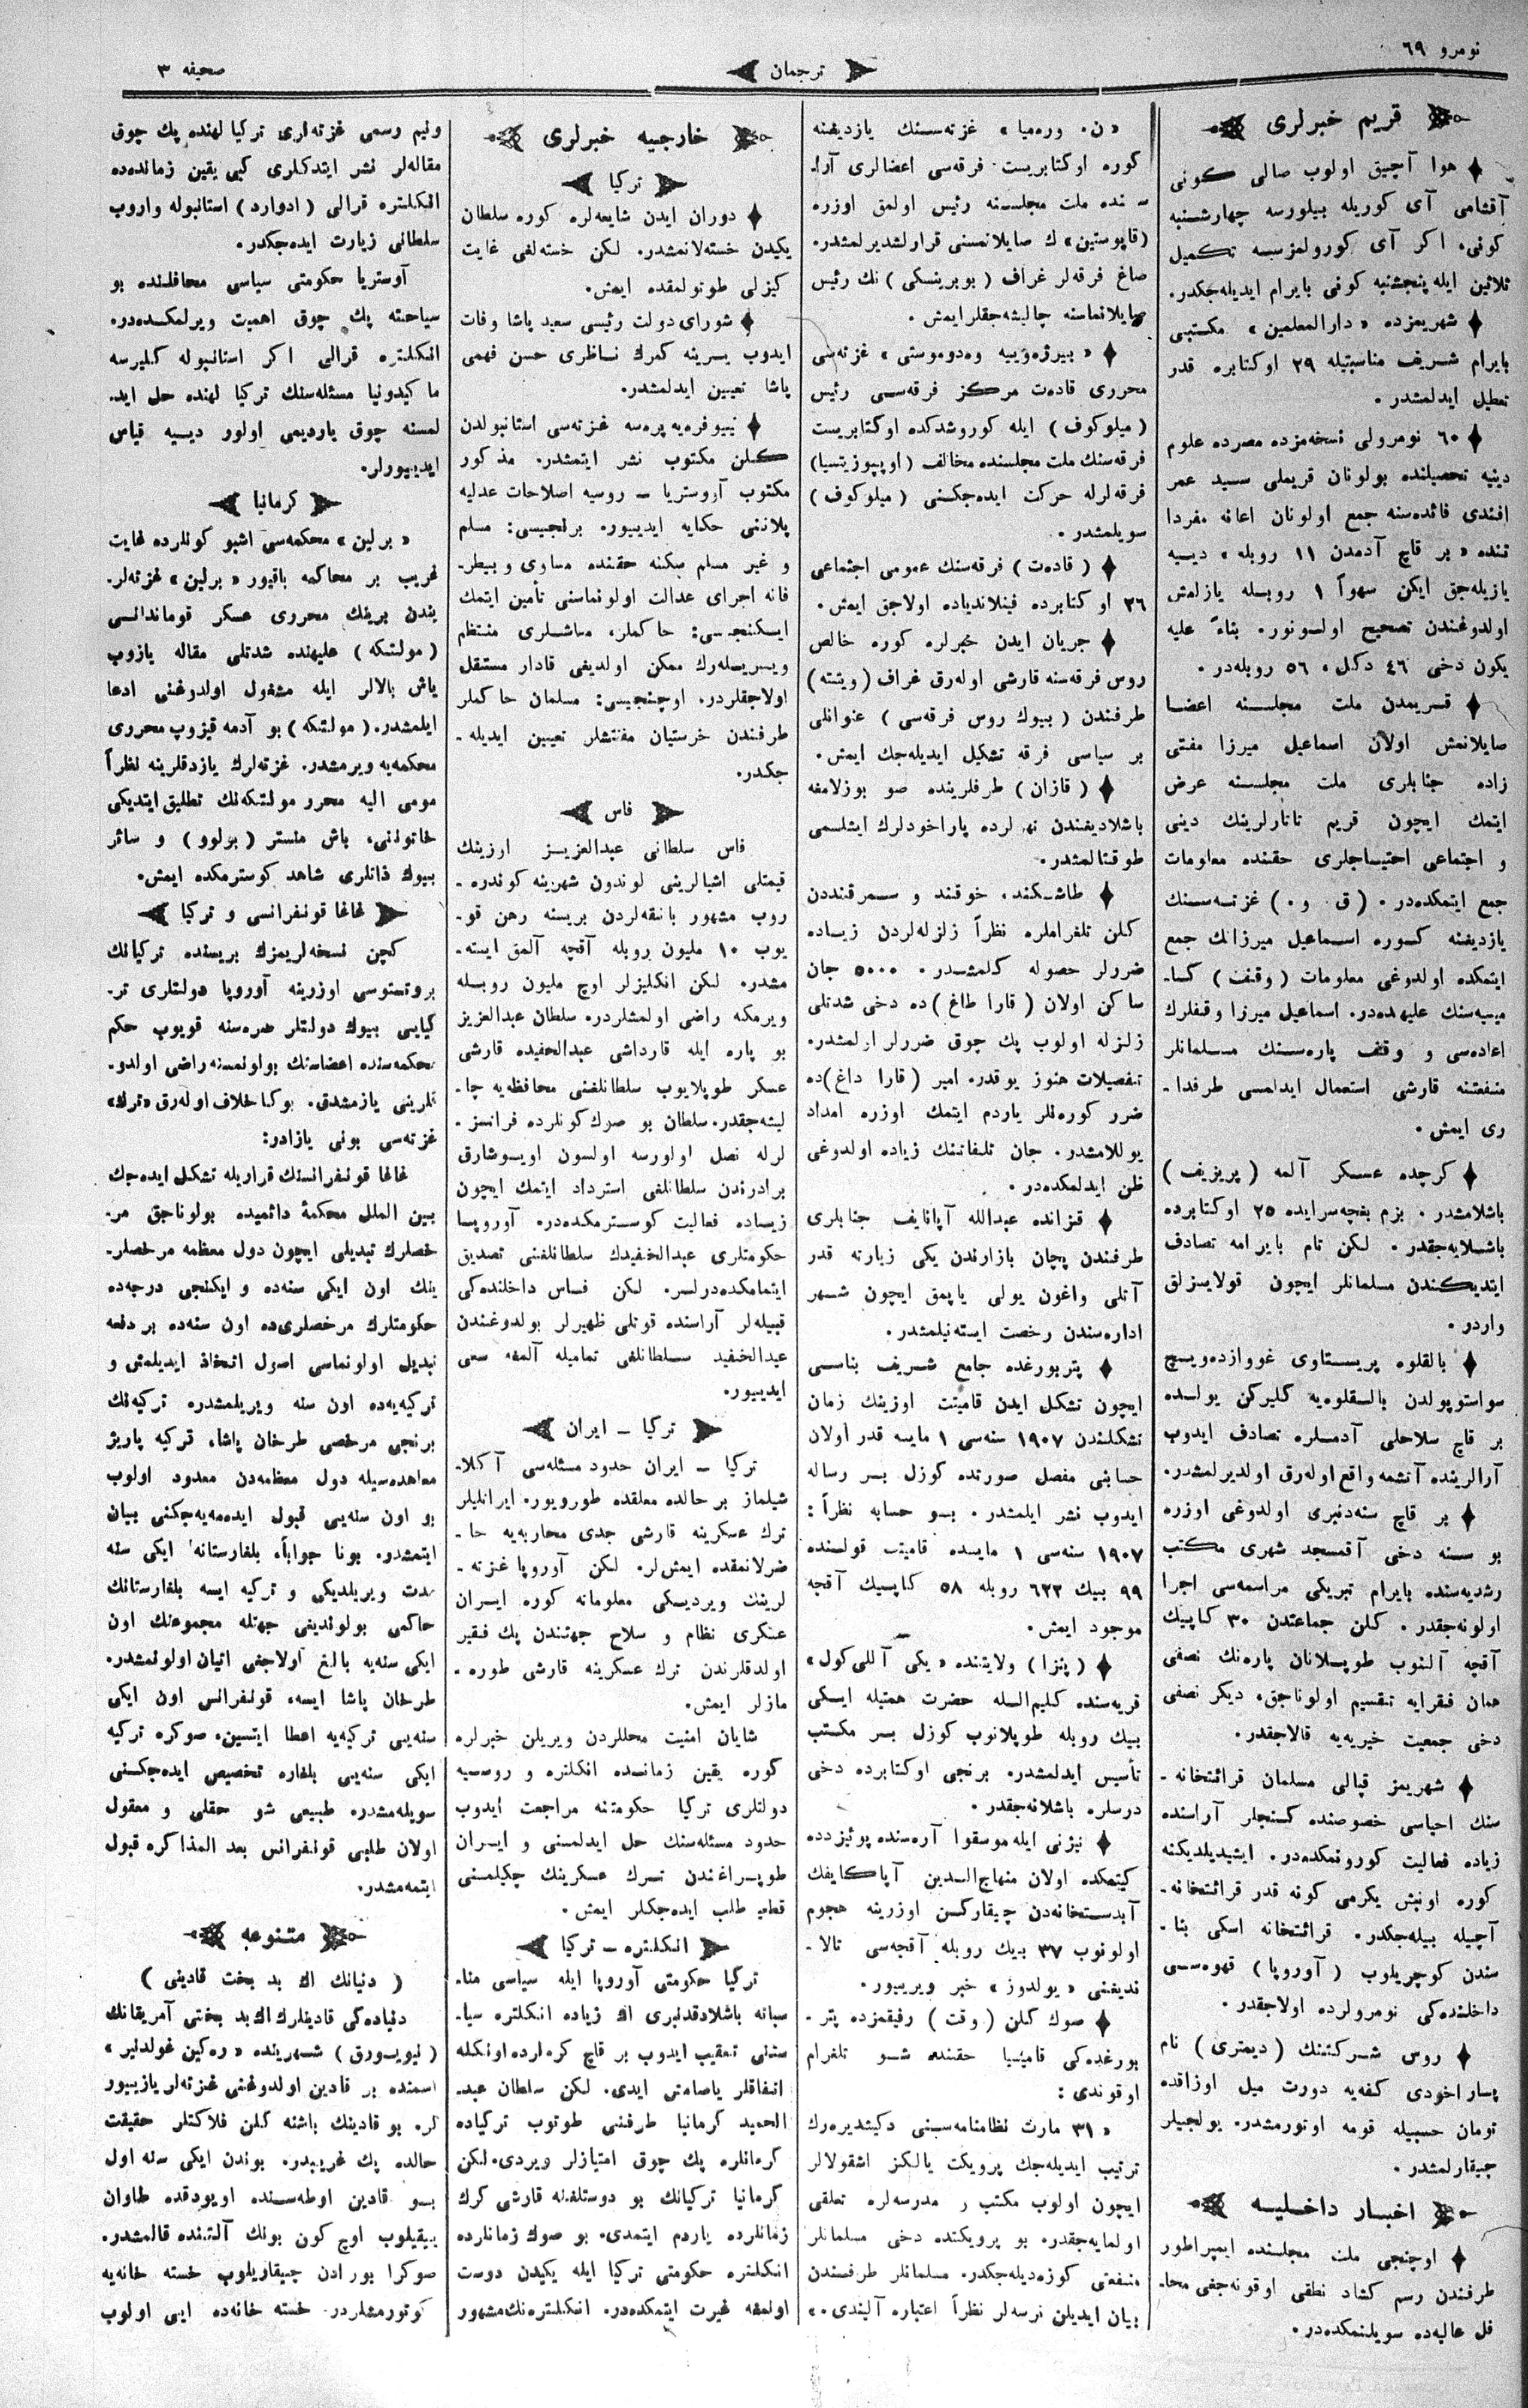 نومرو ٦٩
ترجمان
صحیفه ٣
قریم خبرلری
هوا آچیق اولوب صالی كونی
آقشامی آی كوریله بیلورسه چهارشنبه
كونی، اكر آی كورولمزسه تكمیل
ثلاثین ایله پنجشنبه كونی بایرام ایدیله‌جكدر.
شهریمزده «دارالمعلمین» مكتبی
بایرام شریف مناسبتیله ٢٩ اوكتابره قدر
تعطیل ایدلمشدر.
٦٠ نومرولی نسخه‌مزده مصرده علوم
دینیه تحصیلنده بولونان قریملی سید عمر
افندی فائده‌سنه جمع اولونان اعانه مفردا
تنده «بر قاچ آدمدن ١١ روبله» دییه
یازیله‌جق ایكن سهواً ١ روبله یازلمش
اولدوغندن تصحیح اولونور. بناءً علیه
یكون دخی ٤٦ دكل، ٥٦ روبله‌در.
قریمدن ملت مجلسنه اعضا
صایلانمش اولان اسماعیل میرزا مفتی
زاده جنابلری ملت مجلسنه عرض
ایتمك ایچون قریم تاتارلرینك دینی
و اجتماعی احتیاجلری حقنده معلومات
جمع ایتمكده‌در. (ق. و.) غزته‌سنك
یازدیغنه كوره اسماعیل میرزانك جمع
ایتمكده اولدوغی معلومات (وقف) كا-
میسیه‌سنك علیهنده‌در. اسماعیل میرزا وقفلرك
اعاده‌سی و وقف پاره‌سنك مسلمانلر
منفعتنه قارشی استعمال ایدلمسی طرفدا-
ری ایمش.
كرچده عسكر آلمه (پریزیف)
باشلامشدر. بزم بغچه‌سرایده ٢٥ اوكتابرده
باشلایه‌جقدر. لكن تام بایرامه تصادف
ایتدیكندن مسلمانلر ایچون قولایسزلق
واردر.
بالقلوه پریستاوی غووازده‌ویچ
سواستوپولدن بالقلوه‌یه كلیركن یولده
بر قاچ سلاحلی آدملره تصادف ایدوب
آرالرینده آتشمه واقع اوله‌رق اولدیرلمشدر.
بر قاچ سنه‌دنبری اولدوغی اوزره
بو سنه دخی آقمسجد شهری مكتب
رشدیه‌سنده بایرام تبریكی مراسمه‌سی اجرا
اولونه‌جقدر. كلن جماعتدن ٣٠ كاپیك
آقچه آلنوب طوپلانان پاره‌نك نصفی
همان فقرایه تقسیم اولوناجق، دیكر نصفی
دخی جمعیت خیریه‌یه قالاجقدر.
شهریمز قپالی مسلمان قرائتخانه-
سنك احیاسی خصوصنده كنجلر آراسنده
زیاده فعالیت كورونمكده‌در. ایشیدیلدیكنه
كوره اونبش یكرمی كونه قدر قرائتخانه-
آچیله بیله‌جكدر. قرائتخانه اسكی بنا-
سندن كوچریلوب (آوروپا) قهوه‌سی
داخلنده‌كی نومرولرده اولاجقدر.
روس شركتنك (دیمتری) نام
پاراخودی كفه‌یه دورت میل اوزاقده
تومان حسبیله قومه اوتورمشدر. یولجیلر
چیقارلمشدر.
اخبار داخلیه
اوچنجی ملت مجلسنده ایمپراطور
طرفندن رسم كشاد نطقی اوقونه‌جغی محا-
فل عالیه‌ده سویلنمكده‌در.
«ن. وره‌میا» غزته‌سنك یازدیغنه
كوره اوكتابریست فرقه‌سی اعضالری آرا-
سنده ملت مجلسنه رئیس اولمق اوزره
(قاپوستین)ك صایلانمسنی قرارلشدیرلمشدر.
صاغ فرقه‌لر غراف (بوبرینسكی) نك رئیس
صایلانماسنه چالیشه‌جقلر ایمش.
«بیرژه‌وییه وه‌دوموستی» غزته‌سی
محرری قاده‌ت مركز فرقه‌سی رئیس
(میلوكوف) ایله كوروشدكده اوكتابریست
فرقه‌سنك ملت مجلسنده مخالف (اوپپوزیتسیا)
فرقه‌لرله حركت ایده‌جكنی (میلوكوف)
سویلمشدر.
(قاده‌ت) فرقه‌سنك عمومی اجتماعی
٢٦ اوكتابرده فینلاندیاده اولاجق ایمش.
جریان ایدن خبرلره كوره خالص
روس فرقه‌سنه قارشی اوله‌رق غراف (ویتته)
طرفندن (بیوك روس فرقه‌سی) عنوانلی
بر سیاسی فرقه تشكیل ایدیله‌جك ایمش.
(قازان) طرفلرینده صو بوزلامغه
باشلادیغندن نهرلرده پاراخودلرك ایشلمسی
طوقتالمشدر.
طاشكند، خوقند و سمرقنددن
كلن تلغراملره نظراً زلزله‌لردن زیاده
ضررلر حصوله كلمشدر. ٥٠٠٠ جان
ساكن اولان (قارا طاغ)ده دخی شدتلی
زلزله اولوب پك چوق ضررلر اولمشدر.
تفصیلات هنوز یوقدر. امیر (قارا داغ)ده
ضرر كوره‌نلر یاردم ایتمك اوزره امداد
یوللامشدر. جان تلفاتنك زیاده اولدوغی
ظن ایدلمكده‌در.
قزانده عبدالله آپانایف جنابلری
طرفندن پچان بازارندن یكی زیارته قدر
آتلی واغون یولی یاپمق ایچون شهر
اداره‌سندن رخصت ایسته‌نیلمشدر.
پتربورغده جامع شریف بناسی
ایچون تشكل ایدن قامیتت اوزینك زمان
تشكلندن ١٩٠٧ سنه‌سی ١ مایسه قدر اولان
حسابی مفصل صورتده كوزل بر رساله
ایدوب نشر ایلمشدر. بو حسابه نظراً:
١٩٠٧ سنه‌سی ١ مایسده قامیتت قولنده
٩٩ بیك ٦٢٢ روبله ٥٨ كاپیك آقچه
موجود ایمش.
(پنزا) ولایتنده «یكی آللی‌كول»
قریه‌سنده كلیم‌الله حضرت همتیله ایكی
بیك روبله طوپلانوب كوزل بر مكتب
تأسیس ایدلمشدر. برنجی اوكتابرده دخی
درسلره باشلانه‌جقدر.
نیژنی ایله موسقوا آره‌سنده پوئیزدده
كیتمكده اولان منهاج‌الدین آپاكایفك
آبدستخانه‌دن چیقاركن اوزرینه هجوم
اولونوب ٣٧ بیك روبله آقچه‌سی تالا-
ندیغنی «یولدوز» خبر ویرییور.
صوك كلن (وقت) رفیقمزده پتر-
بورغده‌كی قامیسیا حقنده شو تلغرام
اوقوندی:
«٣١ مارت نظامنامه‌سنی دكیشدیره‌رك
ترتیب ایدیله‌جك پرویكت یالكز اشقولالر
ایچون اولوب مكتب و مدرسه‌لره تعلقی
اولمایه‌جقدر. بو پرویكتده دخی مسلمانلر
منفعتی كوزه‌دیله‌جكدر. مسلمانلر طرفندن
بیان ایدیلن نرسه‌لر نظراً اعتباره آلیندی.»
خارجیه خبرلری
تركیا
دوران ایدن شایعه‌لره كوره سلطان
یكیدن خسته‌لانمشدر. لكن خسته‌لغی غایت
كیزلی طوتولمقده ایمش.
شورای دولت رئیسی سعید پاشا وفات
ایدوب یسرینه كمرك ناظری حسن فهمی
پاشا تعیین ایدلمشدر.
نییوفره‌یه پره‌سه غزته‌سی استانبولدن
كلن مكتوب نشر ایتمشدر. مذكور
مكتوب آروستریا – روسیه اصلاحات عدلیه
پلاننی حكایه ایدیییور. برنجیسی: مسلم
و غیر مسلم سكنه حقنده مساوی و بیطر-
فانه اجرای عدالت اولونماسنی تأمین ایتمك
ایكنجیسی: حاكملر، معاشلری منتظم
ویریله‌رك ممكن اولدیغی قادار مستقل
اولاجقلردر. اوچنجیسی: مسلمان حاكملر
طرفندن خرستیان مفتشلر تعیین ایدیله-
جكدر.
فاس
فاس سلطانی عبدالعزیز اوزینك
قیمتلی اشیالرینی لوندون شهرینه كوندره-
روب مشهور بانقه‌لردن بریسنه رهن قو-
یوب ١٠ ملیون روبله آقچه آلمق ایسته-
مشدر. لكن انكلیزلر اوچ ملیون روبله
ویرمكه راضی اولمشلردر. سلطان عبدالعزیز
بو پاره ایله قارداشی عبدالحفیده قارشی
عسكر طوپلایوب سلطانلغنی محافظه‌یه چا-
لیشه‌جقدر. سلطان بو صوك كونلرده فرانسز-
لرله نصل اولورسه اولسون اویوشارق
برادرندن سلطانلغی استرداد ایتمك ایچون
زیاده فعالیت كوسترمكده‌در. آوروپا
حكومتلری عبدالحفیدك سلطانلغنی تصدیق
ایتمامكده‌درلر. لكن فاس داخلنده‌كی
قبیله‌لر آراسنده قوتلی ظهیرلر بولدوغندن
عبدالحفید سلطانلغی تمامیله آلمغه سعی
ایدییور.
تركیا – ایران
تركیا – ایران حدود مسئله‌سی آكلا-
شیلماز بر حالده معلقده طورویور. ایرانلیلر
ترك عسكرینه قارشی جدی محاربه‌یه حا-
ضرلانمقده ایمش‌لر. لكن آوروپا غزته-
لرینك ویردیكی معلوماته كوره ایران
عسكری نظام و سلاح جهتندن پك فقیر
اولدقلرندن ترك عسكرینه قارشی طوره-
مازلر ایمش.
شایان امنیت محللردن ویریلن خبرلره
كوره یقین زمانده انكلتره و روسیه
دولتلری تركیا حكومتنه مراجعت ایدوب
حدود مسئله‌سنك حل ایدلمسنی و ایران
طوپراغندن ترك عسكرینك چكیلمسنی
قطعیاً طلب ایده‌جكلر ایمش.
انكلتره – تركیا
تركیا حكومتی آوروپا ایله سیاسی منا-
سباته باشلادقدنبری اك زیاده انكلتره سیا-
ستنی تعقیب ایدوب بر قاچ كره‌لرده اونكله
اتفاقلر یاصامش ایدی. لكن سلطان عبد-
الحمید كرمانیا طرفنی طوتوب تركیاده
كرمانلره پك چوق امتیازلر ویردی. لكن
كرمانیا تركیانك بو دوستلغنه قارشی كرك
زمانلرده یاردم ایتمدی. بو صوك زمانلرده
انكلتره حكومتی تركیا ایله یكیدن دوست
اولمغه غیرت ایتمكده‌در. انكلتره‌نك مشهور
ولیم رسمی غزته‌لری تركیا لهنده پك چوق
مقاله‌لر نشر ایتدكلری كبی یقین زمانده‌ده
انكلتره قرالی (ادوارد) استانبوله واروب
سلطانی زیارت ایده‌جكدر.
آوستریا حكومتی سیاسی محافلنده بو
سیاحته پك چوق اهمیت ویرلمكده‌در.
انكلتره قرالی اكر استانبوله كلیرسه
ماكیدونیا مسئله‌سنك تركیا لهنده حل اید-
لمسنه چوق یاردیمی اولور دییه قیاس
ایدییورلر.
كرمانیا
«برلین» محكمه‌سی اشبو كونلرده غایت
غریب بر محاكمه باقیور «برلین» غزته‌لر-
یندن برینك محرری عسكر قوماندانی
(مولتكه) علیهنده شدتلی مقاله یازوب
یاش بالالر ایله مشغول اولدوغنی ادعا
ایلمشدر. (مولتكه) بو آدمه قیزوب محرری
محكمه‌یه ویرمشدر. غزته‌لرك یازدقلرینه نظراً
مومی الیه محرر مولتكه‌نك تطلیق ایتدیكی
خاتوننی، باش منستر (بولوو) و سائر
بیوك ذاتلری شاهد كوسترمكده ایمش.
غاغا قونفرانسی و تركیا
كچن نسخه‌لریمزك بریسنده تركیانك
پروتستوسی اوزرینه آوروپا دولتلری تر-
كیایی بیوك دولتلر صره‌سنه قویوب حكم
محكمه‌سنده اعضاسنك بولونمسنه راضی اولدو-
قلرینی یازمشدق. بوكا خلاف اوله‌رق «ترك»
غزته‌سی بونی یازادر:
غاغا قونفرانسنك قراریله تشكل ایده‌جك
بین الملل محكمهٔ دائمیده بولوناجق مر-
خصلرك تبدیلی ایچون دول معظمه مرخصلر-
ینك اون ایكی سنه‌ده و ایكنجی درجه‌ده
حكومتلرك مرخصلری‌ده اون سنه‌ده بر دفعه
تبدیل اولونماسی اصول اتخاذ ایدیلمش و
تركیه‌یه‌ده اون سنه ویریلمشدر. تركیه‌نك
برنجی مرخصی طرخان پاشا، تركیه پاریز
معاهده‌سیله دول معظمه‌دن معدود اولوب
بو اون سنه‌یی قبول ایده‌مه‌یه‌جكنی بیان
ایتمشدر. بونا جواباً، بلغارستانه ایكی سنه
مدت ویریلدیكی و تركیه ایسه بلغارستانك
حاكمی بولوندیغی جهتله مجموعنك اون
ایكی سنه‌یه بالغ اولاجغی اتیان اولونمشدر.
طرخان پاشا ایسه، قونفرانس اون ایكی
سنه‌یی تركیه‌یه اعطا ایتسین، صوكره تركیه
ایكی سنه‌یی بلغاره تخصیص ایده‌جكنی
سویله‌مشدر. طبیعی شو حقلی و معقول
اولان طلبی قونفرانس بعد المذاكره قبول
ایتمه‌مشدر.
متنوعه
(دنیانك اك بد بخت قادینی)
دنیاده‌كی قادینلرك اك بد بختی آمریقانك
(نیویورق) شهرینده «ره‌كین غولدلیر»
اسمنده بر قادین اولدوغنی غزته‌لر یازییور
لر. بو قادینك باشنه كلن فلاكتلر حقیقت
حالده پك غریبدر. بوندن ایكی سنه اول
بو قادین اوطه‌سنده اویودقده طاوان
ییقیلوب اوچ كون بونك آلتنده قالمشدر.
صوكرا بورادن چیقاریلوب خسته خانه‌یه
كوتورمشلردر. خسته خانه‌ده ایی اولوب